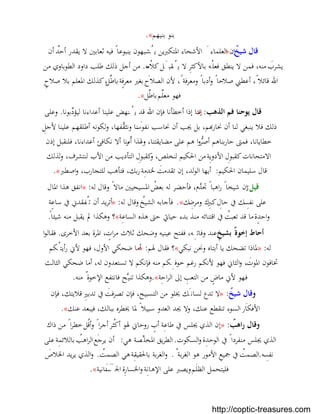 بنو بنيهم».
قال شيخ: إن «العلماء الأشحاء المتكبرين يشبهون ينبوعاً فيه ثعابين لا يقدر أحد أن
يشرب منه، فمن لا ينطق فعله بالأكثر لا يقبل كلامه. من أجل ذلك طلب داود الطوباوي من
الله قائلاً: أعطني صلاحاً وأدباً ومعرفة، لأن الصلاح بغير معرفة باطل كذلك المعلم بلا صلاح
فهو معلم باطل».
قال يوحنا فم الذهب: إننا إذا أخطأنا فإن الله قد ينهض علينا أعداءنا ليؤدبونا. وعلى
ذلك فلا ينبغي لنا أن نحاربهم، بل يجب أن نحاسب نفوسنا ونثقفها، ولكونه أطلقهم علينا لأجل
خطايانا، فمتى حاربناهم أصروا هم على مضايقتنا، ولهذا أمرنا ألا نكافئ أعداءنا، فلنقبل إذن
الامتحانات كقبول الأدوية من الحكيم لنخلص، وكقبول التأديب من الأب لنتشرف، ولذلك
قال سليمان الحكيم: أيها الولد، إن تقدمت لخدمة ربك، فتأهب للتجارب، واصطبر».
قيل إن شيخاً راهباً تخدم، فأحضر له بعض المسيحيين مالاً وقال له: «انفق هذا المال
على نفسك في حال كبرك ومرضك». فأجابه الشيخ وقال له: «أتريد أن تفقدني في ساعة
واحدة ما قد تعبت في اقتنائه منذ بدء حياتي حتى هذه الساعة»؟ وهكذا لم يقبل منه شيئاً.
أحاط إخوة بشيخ عند وفاته، ففتح عينيه وضحك ثلاث مرات، المرة بعد الأخرى. فقالوا
له: «لماذا تضحك يا أبتاه ونحن نبكي»؟ فقال لهم: «أما ضحكي الأول، فهو لأني رأيتكم
تخافون الموت، والثاني فهو لأنكم رغم خوفكم منه فإنكم لا تستعدون له، أما ضحكي الثالث
فهو لأني ماضٍ من التعب إلى الراحة». وهكذا تنيح فانتفع الإخوة منه.
وقال شيخ: «لا تدع لسانك يخلو من التسبيح، فإن تصرفت في تدبير قلايتك، فإن
الأفكار السوء تنقطع عنك، ولا يجد العدو سبيلاً لما يخطره ببالك، فيبعد عنك».
وقال راهب: «إن الذي يجلس في طاعة أب روحاني لهو أكثر أجراً وأقل خطراً من ذاك
الذي يجلس منفرداً في الوحدة والسكوت. الطريق المخلّصة هي: أن يرجع الراهب باللائمة على
نفسه. الصمت في جميع الأمور هو الغربة، والغربة بالحقيقة هي الصمت. والذي يريد الخلاص
فليحتمل الظلم ويصبر على الإهانة والخسارة الجسمانية».
http://coptic-treasures.com